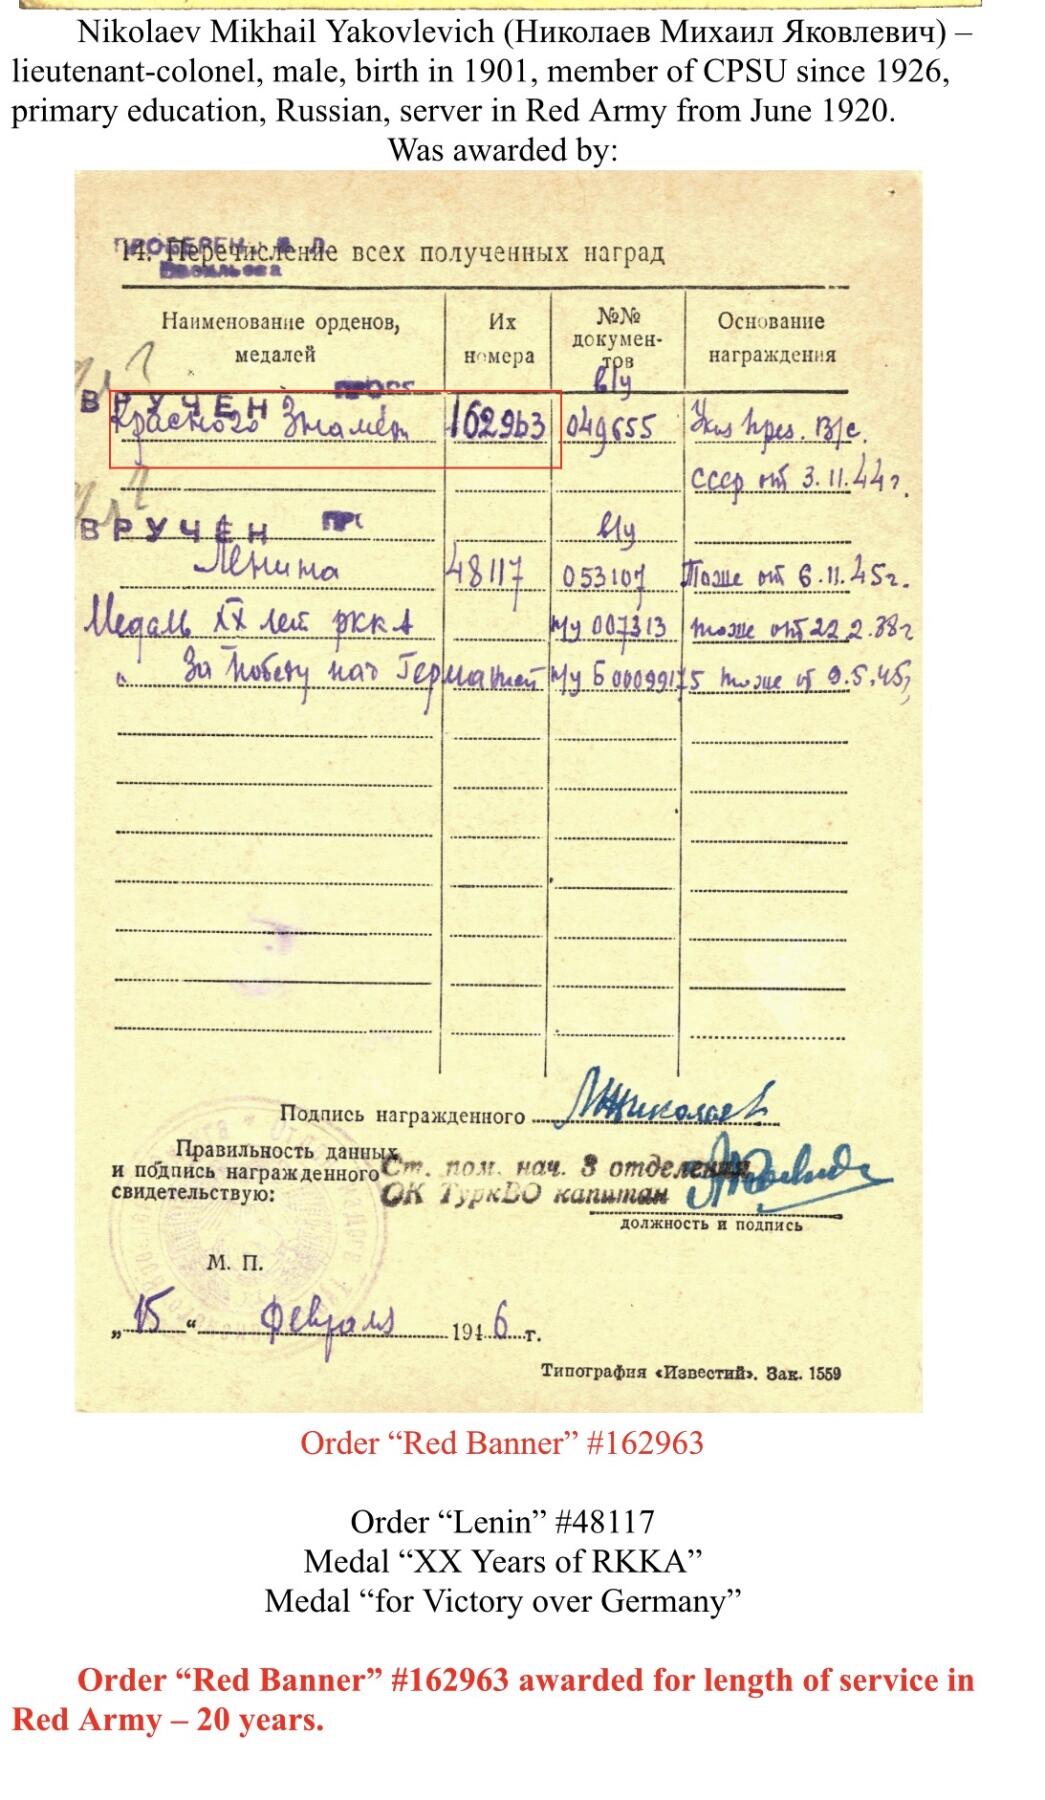 Nikolaev Mikhail Yakovlevich (Николаев Михаил Яковлевич) –
lieutenant-colonel, male, birth in 1901, member of CPSU since 1926,
primary education, Russian, server in Red Army from June 1920.
Was awarded by:
14. Перечисление всех полученных наград
Наименование орденов, медалей
Их номера
№№ докумен-тов
Основание награждения
ВРУЧЕН
в/у
Красного Знамен 162963 049655 Указ През. В/С.
СССР от 3.11.44г.
ВРУЧЕН
в/у
Ленина 48117 053107 Тоже от 6.11.45г.
Медаль XX лет РККА м/у 007313 тоже от 22.2.38г
„ За победу над Германией м/у Б 0009915 тоже от 9.5.45,
Подпись награжденного МНиколаев
Правильность данных
и подпись награжденного
свидетельствую:
Ст. пом. нач. 3 отделения
ОК ТуркВО капитан
должность и подпись
М. П.
„15“ февраля 1946 г.
Типография «Известий». Зак. 1559
Order “Red Banner” #162963
Order “Lenin” #48117
Medal “XX Years of RKKA”
Medal “for Victory over Germany”
Order “Red Banner” #162963 awarded for length of service in
Red Army – 20 years.